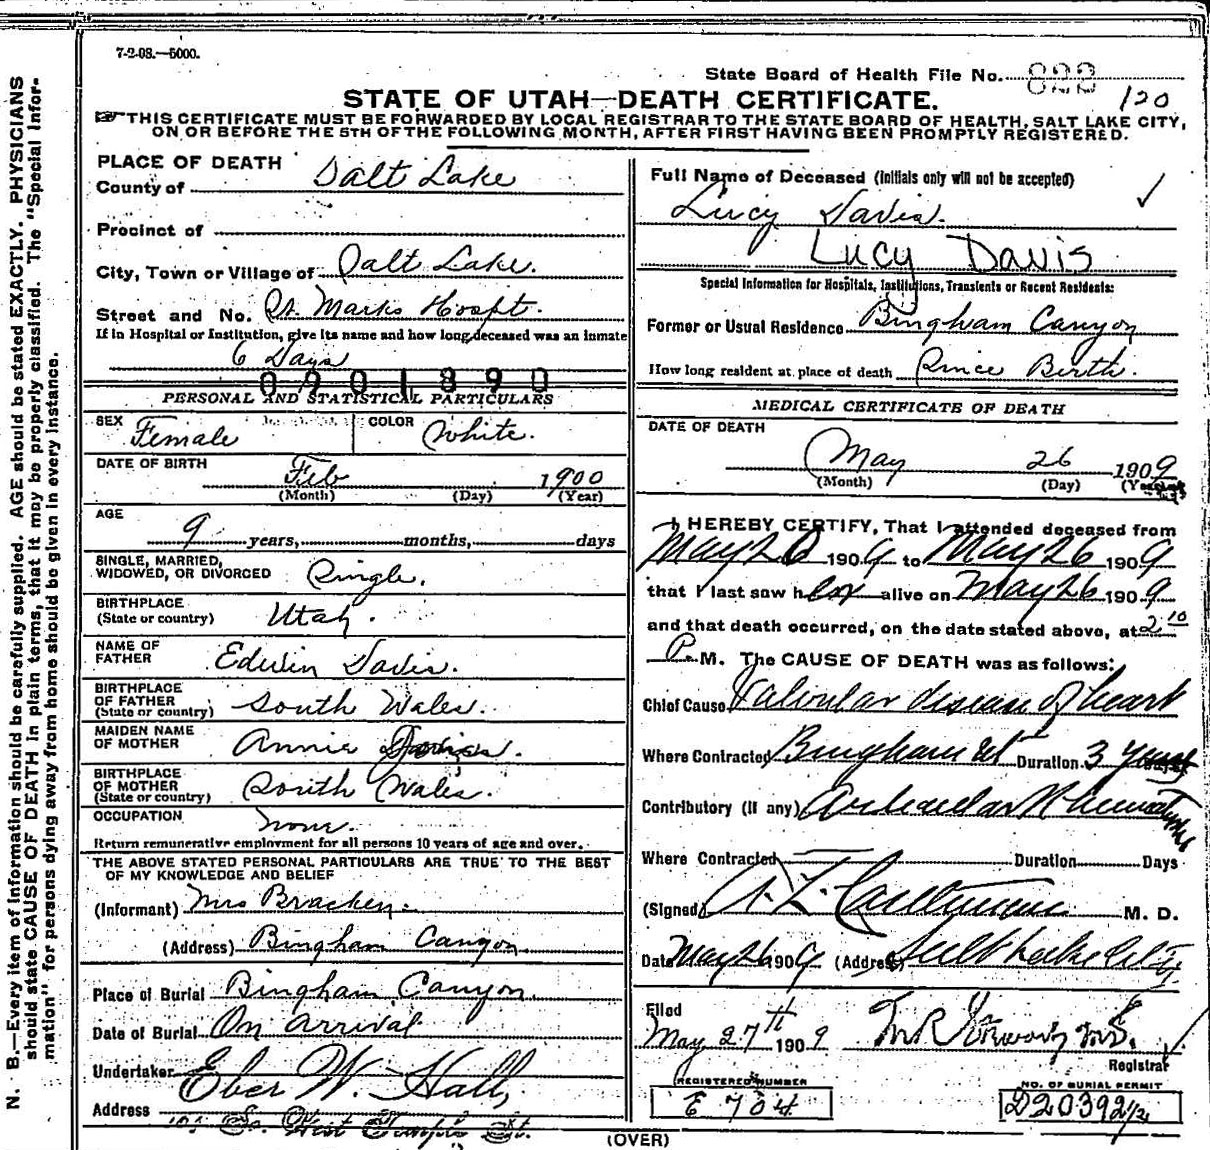 7-2-08.—5000.
State Board of Health File No. 822
120
STATE OF UTAH—DEATH CERTIFICATE.
THIS CERTIFICATE MUST BE FORWARDED BY LOCAL REGISTRAR TO THE STATE BOARD OF HEALTH, SALT LAKE CITY,
ON OR BEFORE THE 5TH OF THE FOLLOWING MONTH, AFTER FIRST HAVING BEEN PROMPTLY REGISTERED.
PLACE OF DEATH
County of Salt Lake
Precinct of
City, Town or Village of Salt Lake.
Street and No. St. Marks Hospt.
If in Hospital or Institution, give its name and how long deceased was an inmate
6 Days
0901890
PERSONAL AND STATISTICAL PARTICULARS
SEX Female COLOR White.
DATE OF BIRTH Feb 1900
(Month) (Day) (Year)
AGE
9 years, months, days
SINGLE, MARRIED,
WIDOWED, OR DIVORCED Single.
BIRTHPLACE
(State or country) Utah.
NAME OF
FATHER Edwin Davis.
BIRTHPLACE
OF FATHER
(State or country) South Wales.
MAIDEN NAME
OF MOTHER Annie
BIRTHPLACE
OF MOTHER
(State or country) South Wales.
OCCUPATION none.
Return remunerative employment for all persons 10 years of age and over.
THE ABOVE STATED PERSONAL PARTICULARS ARE TRUE TO THE BEST
OF MY KNOWLEDGE AND BELIEF
(Informant) Mrs Bracken.
(Address) Bingham Canyon
Place of Burial Bingham Canyon.
Date of Burial On arrival
Undertaker Eber W. Hall,
Address So. West Temple St.
Full Name of Deceased (Initials only will not be accepted)
Lucy Davis.
LUCY DAVIS
Special Information for Hospitals, Institutions, Transients or Recent Residents:
Former or Usual Residence Bingham Canyon
How long resident at place of death Since Birth.
MEDICAL CERTIFICATE OF DEATH
DATE OF DEATH
May 26 1909
(Month) (Day) (Year)
I HEREBY CERTIFY, That I attended deceased from
May 20 1909 to May 26 1909
that I last saw her alive on May 26 1909
and that death occurred, on the date stated above, at 2 10
P. M. The CAUSE OF DEATH was as follows:
Chief Cause Valvular disease of heart
Where Contracted Bingham Ut Duration 3 years
Contributory (if any) Articular Rheumatism
Where Contracted Duration Days
(Signed) M. D.
Date May 26 1909 (Address) Salt Lake City
Filed
May 27th 1909
Registrar
REGISTERED NUMBER
E 704
NO. OF BURIAL PERMIT
D20392 1/2
(OVER)
N. B.—Every item of information should be carefully supplied. AGE should be stated EXACTLY. PHYSICIANS
should state CAUSE OF DEATH in plain terms, that it may be properly classified. The "Special Infor-
mation" for persons dying away from home should be given in every instance.